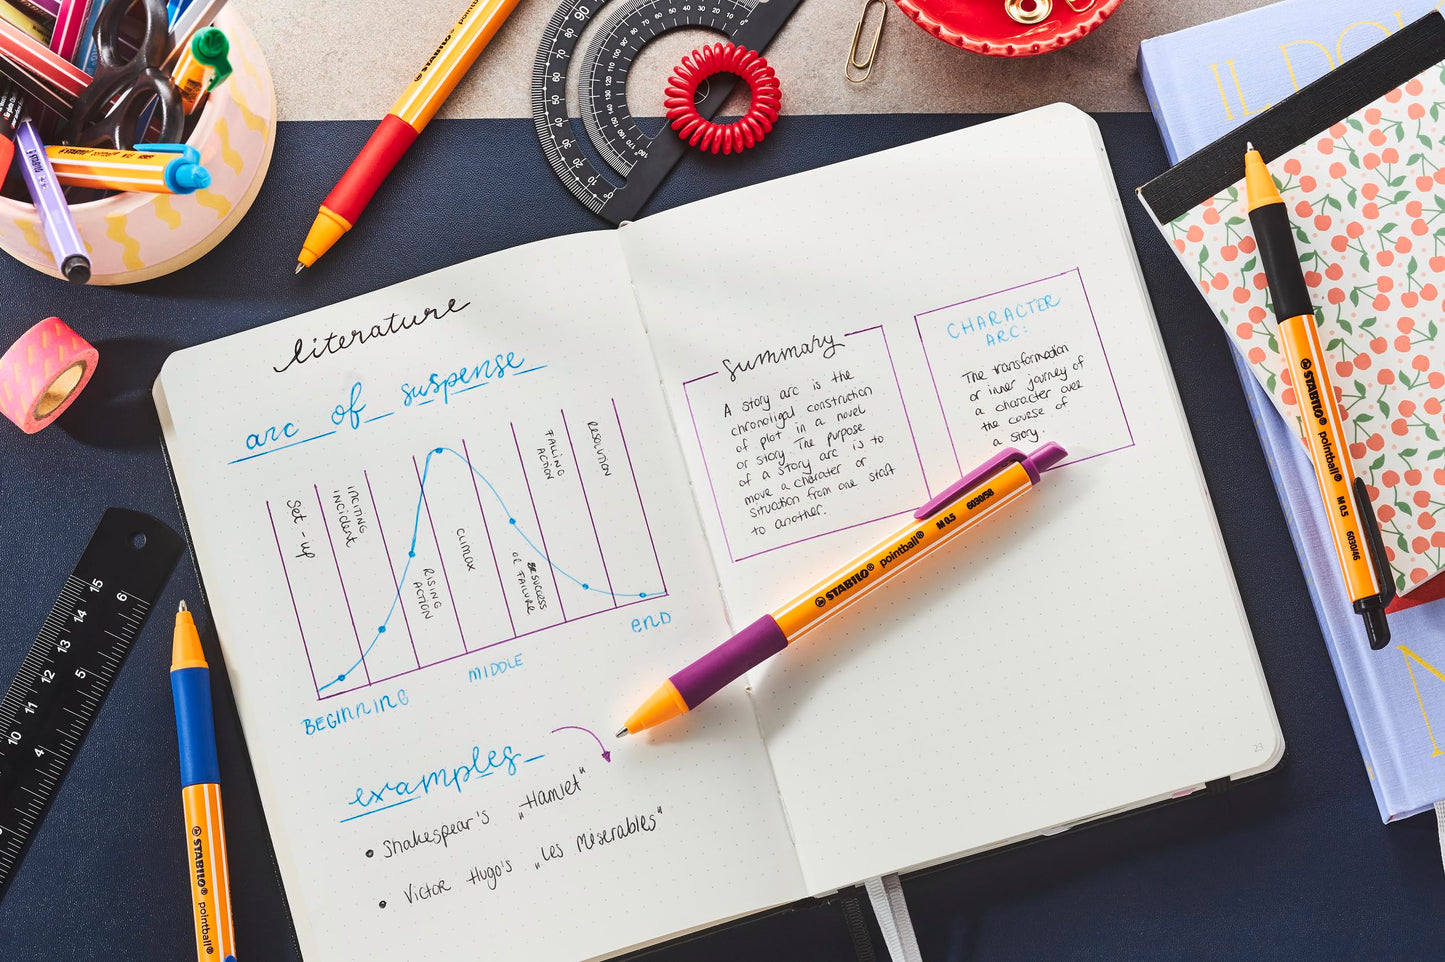 literature
arc of suspense
Set-up
INCITING
INCIDENT
RISING
ACTION
CLIMAX
SUCCESS
OR FAILURE
FALLING
ACTION
RESOLUTION
BEGINNING
MIDDLE
END
examples
Shakespear's „Hamlet"
Victor Hugo's „Les Miserables"
Summary
A story arc is the
chronoligal construction
of plot in a novel
or story. The purpose
of a story arc is to
move a charater or
situation from one staft
to another.
CHARACTER
ARC:
The transformation
or inner journey of
a character over
the course of
a story.
23
STABILO® pointball® M 0.5 6030/58
STABILO® pointball® M 0.5 6030/46
STABILO® pointball®
STABILO®
IL DO
15
14
13
12
11
10
6
5
4
90
80
70
60
50
40
30
20
10
0°